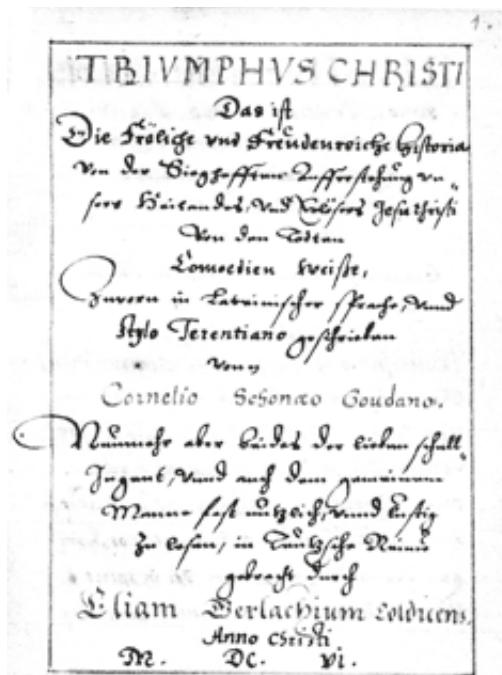 1.
TRIVMPHVS CHRISTI
Das ist
Die Fröliche vnd Freudenreiche Historia
von der Sieghafften Aufferstehung vn-
sers Heilandes, vnd Erlösers Jesu Christi
Von den Todten
Comoedien weise,
Zuvorn in Lateinischer sprache, vnnd
stylo Terentiano geschrieben
von
Cornelio Schonæo Goudano.
Nunmehr aber beides der lieben schull
Jugent, vnnd auch dem gemeinem
Manne fast nutzlich, vnnd lustig
zu lesen, in Deutzsche Reime
gebracht durch
Eliam Gerlachium Coldicens.
Anno Christi
M. DC. VI.